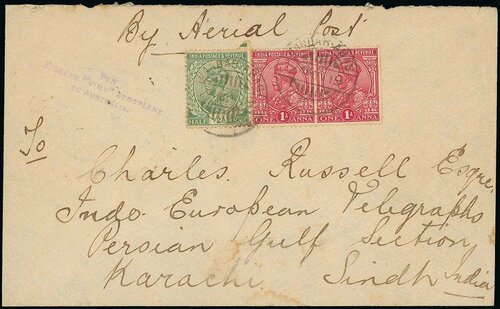 By Aerial Post
INDIA POSTAGE & REVENUE
HALF
INDIA POSTAGE & REVENUE
ONE 1A ANNA
INDIA POSTAGE & REVENUE
ONE 1A ANNA
PER
AEROPLANE
TO AUSTRALIA.
To
Charles Russell Esqre,
Indo European Telegraphs
Persian Gulf Section,
Karachi Sindh India